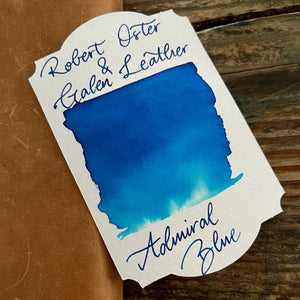 Robert Oster
&
Galen Leather
Admiral
Blue